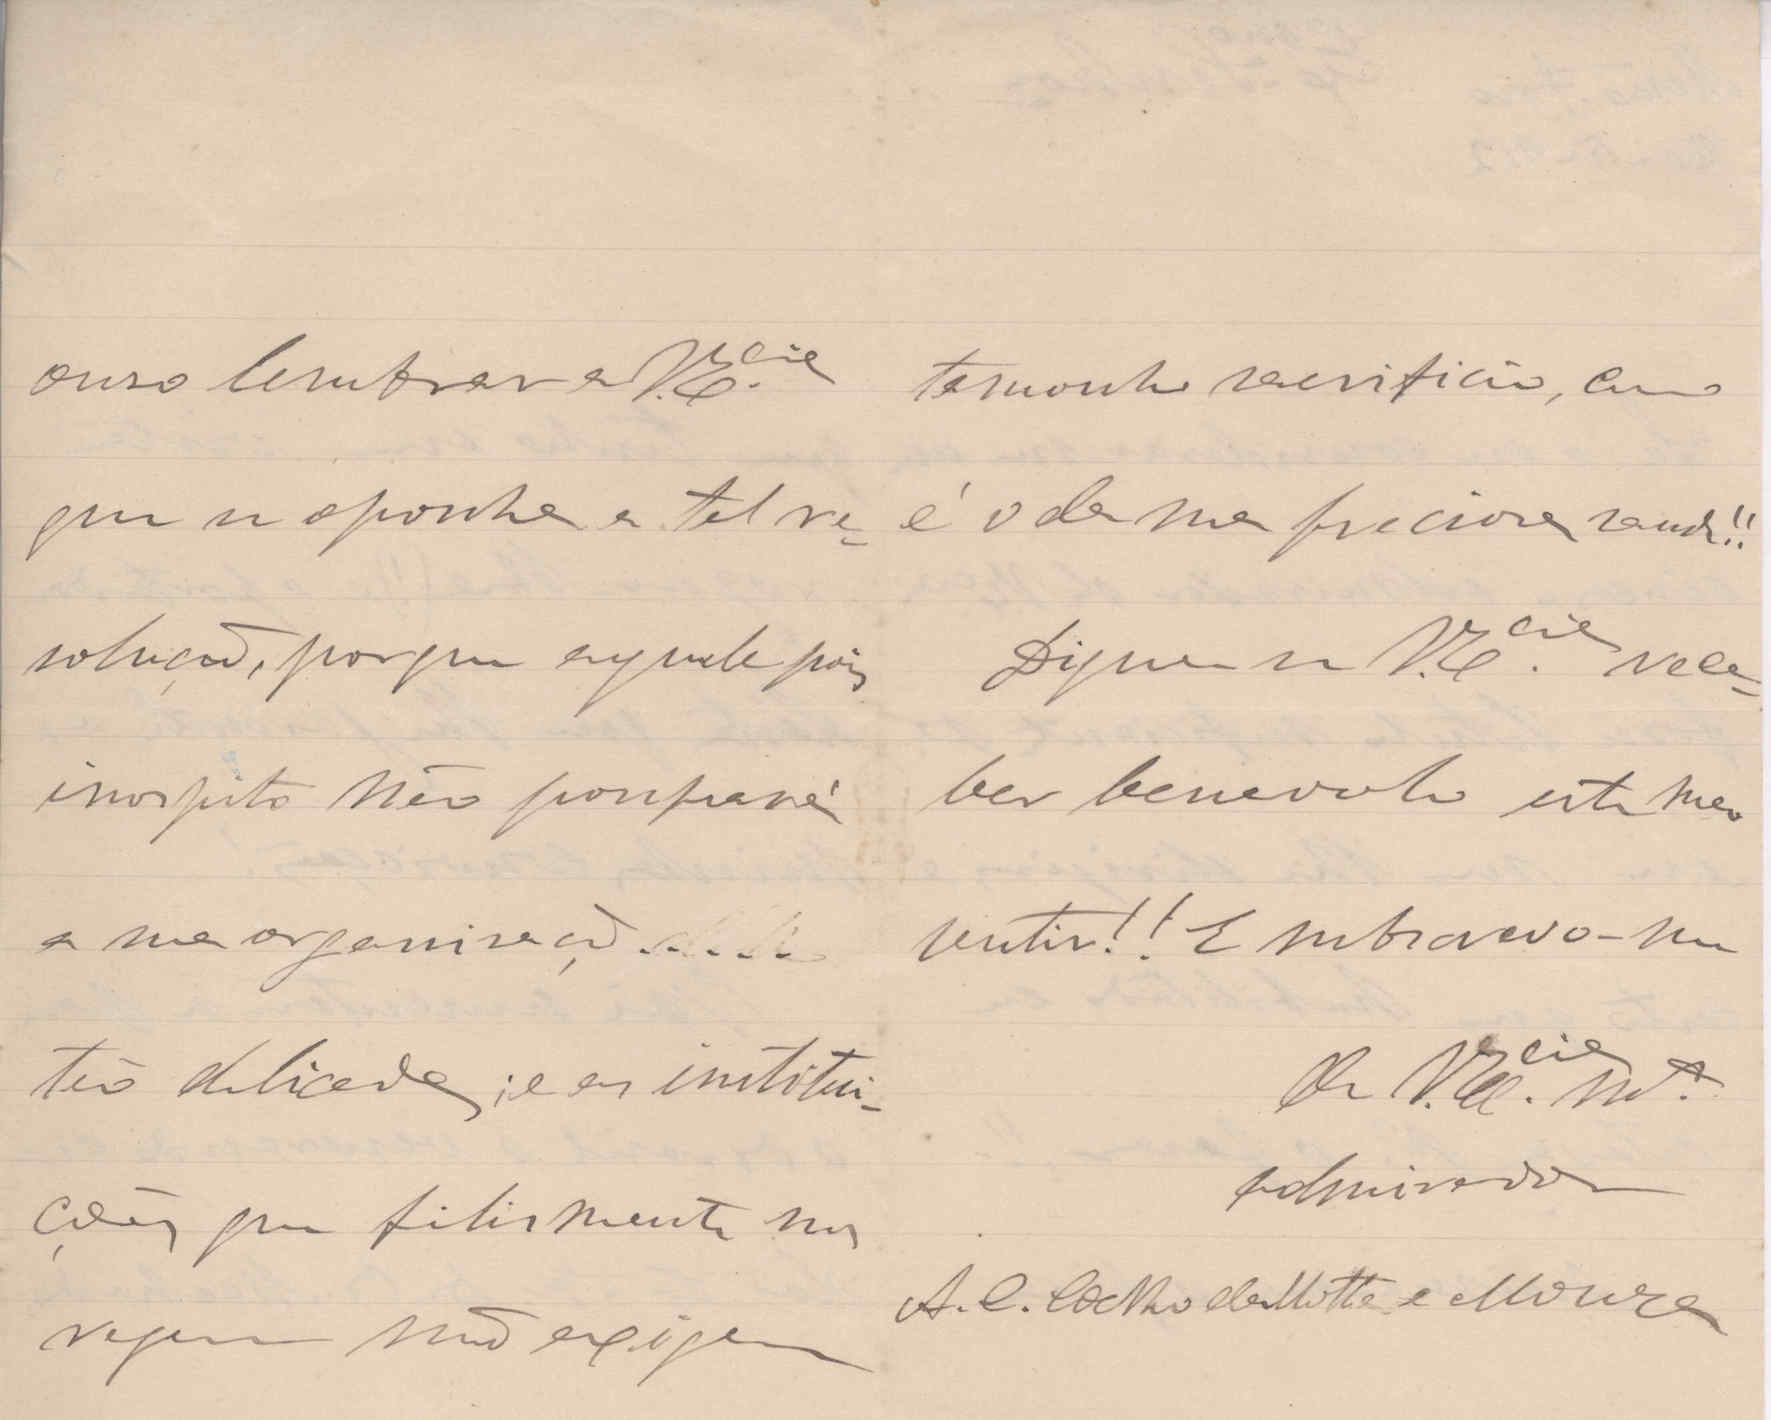 ouso lembrar a V.Ex.cia
que se oponha a tal re-
solução, porque aquele pais
inospito não poupará
a sua organisação.....
tão delicada, e as institui-
ções que felismente nos
regem não exigem
tamanho sacrificio, como
é o da sua preciosa saude!!
Digne-se V.Ex.cia rece-
ber benevolo este meu
sentir!! E subscrevo-me
De V.Ex.cia M.to
admirador
A. C. Coelho da Motta e Moura